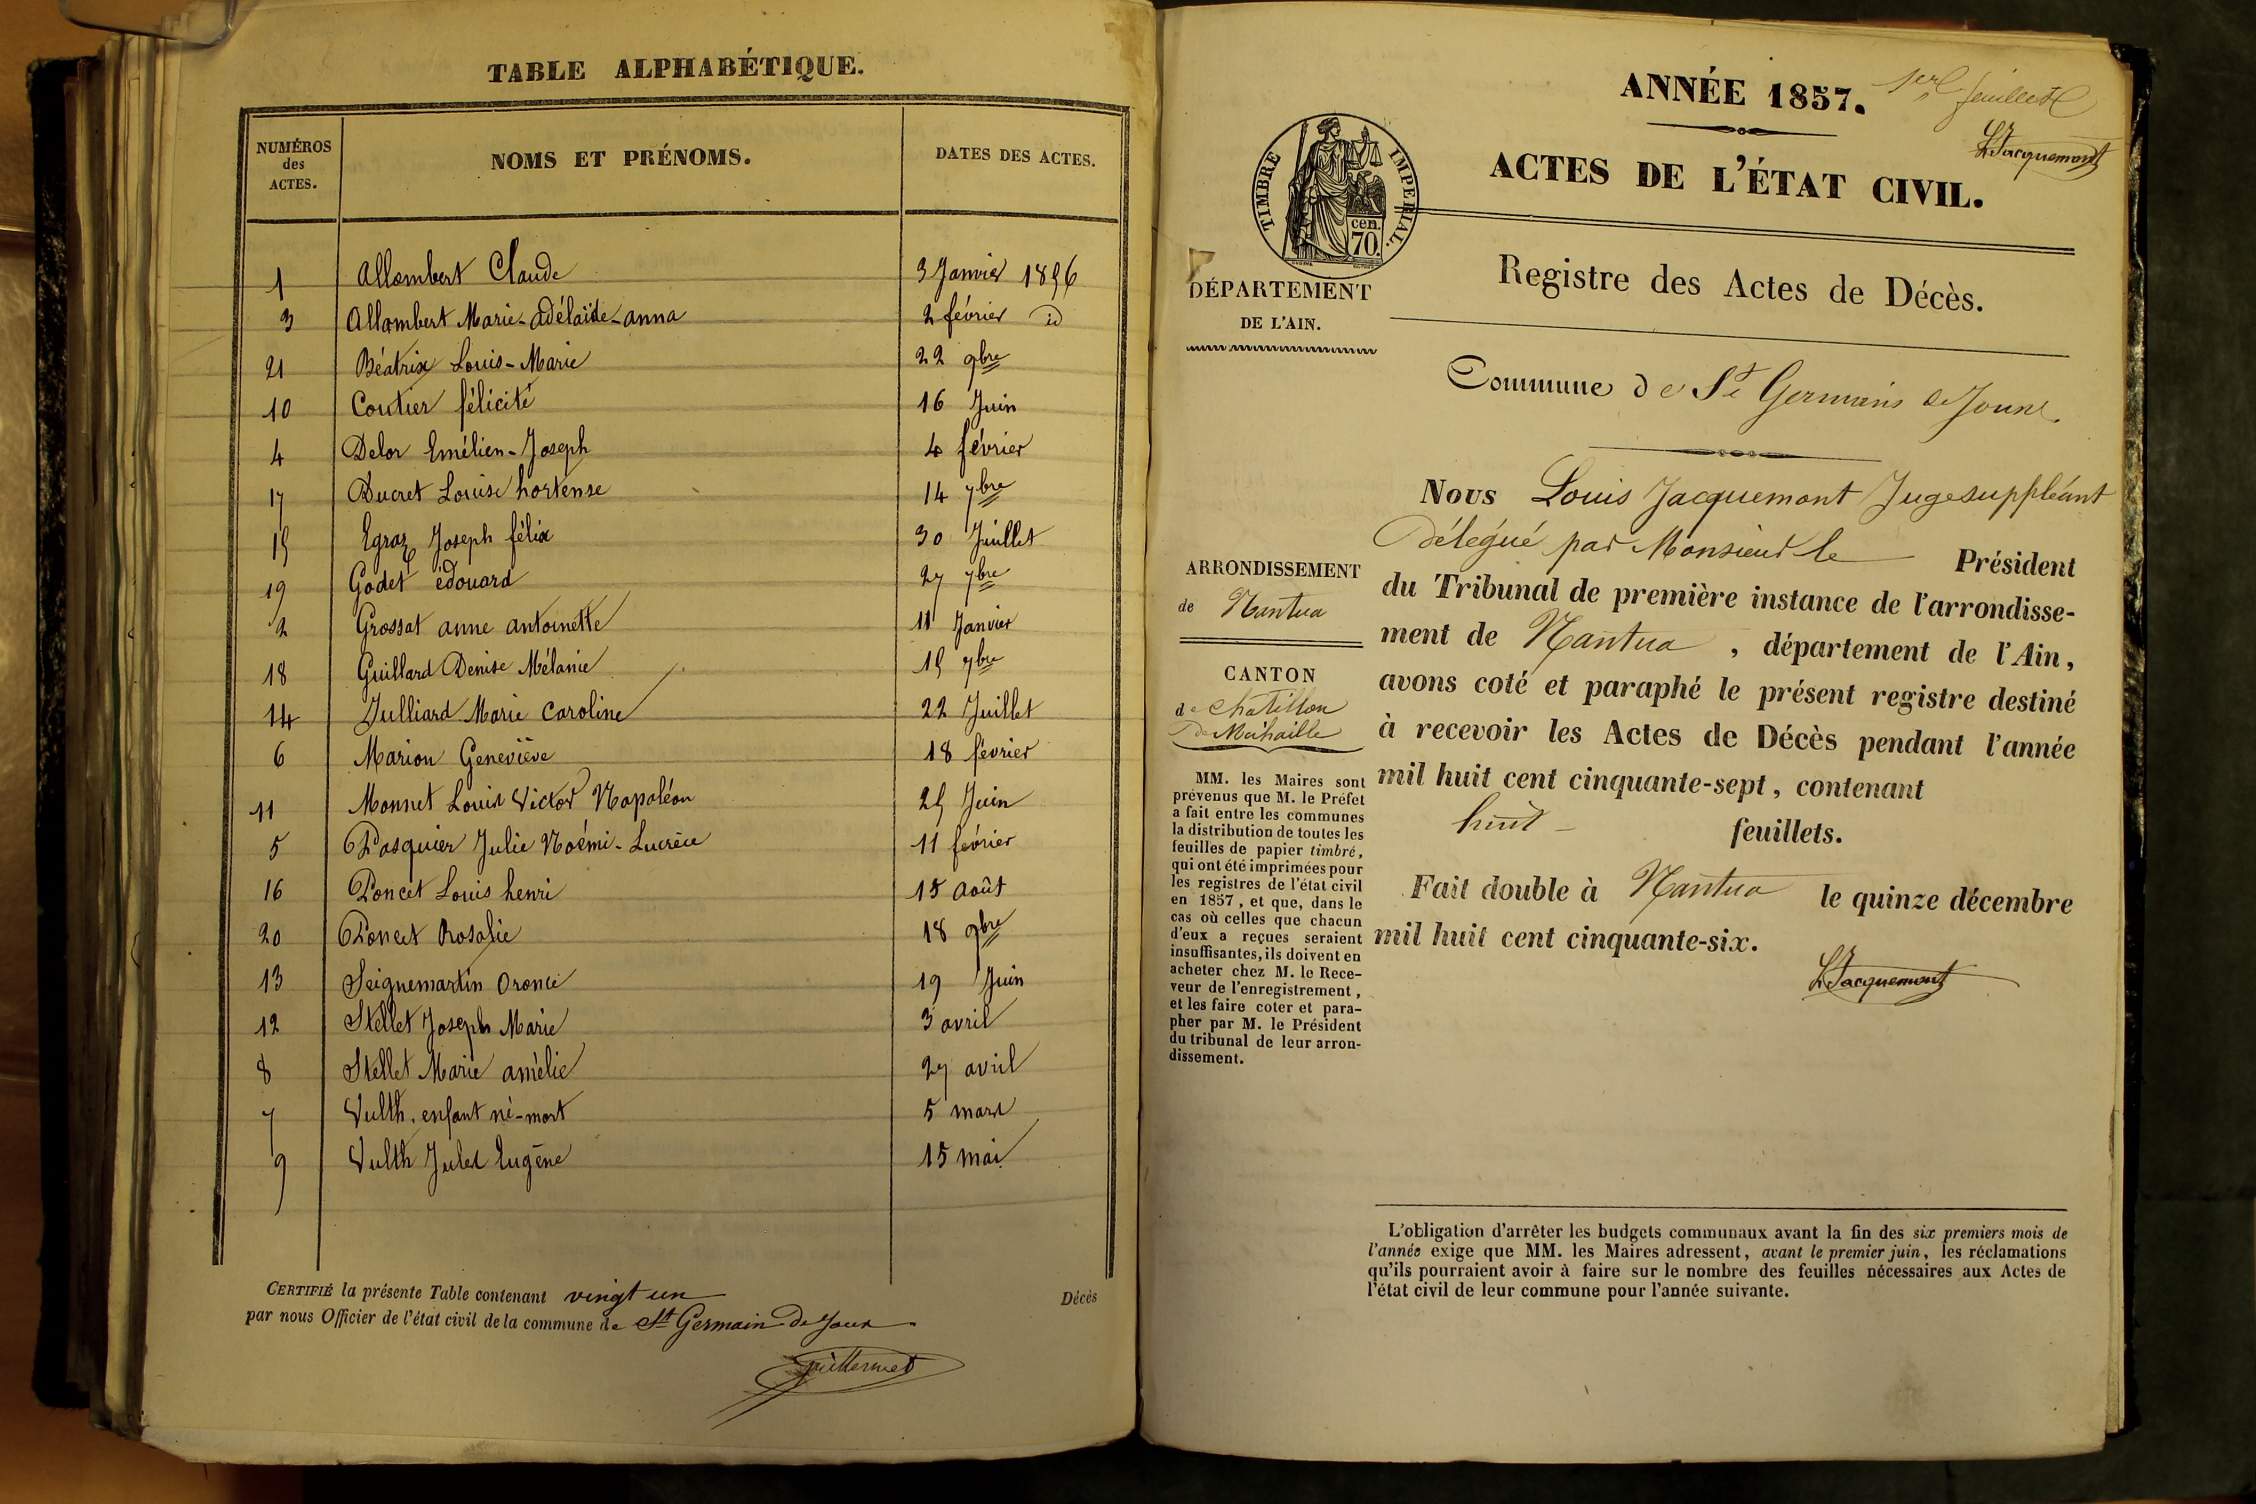 TABLE ALPHABÉTIQUE.
NUMÉROS des ACTES. NOMS ET PRÉNOMS. DATES DES ACTES.
1 Allombert Claude 3 Janvier 1856
3 Allombert Marie-adélaïde-anna 2 février id
21 Béatrix Louis-Marie 22 9bre
10 Coutier félicité 16 Juin
4 Delor Emélien-Joseph 4 février
17 Ducret Louise hortense 14 7bre
15 Egraz Joseph félix 30 Juillet
19 Godet édouard 27 7bre
2 Grossat anne antoinette 11 Janvier
18 Guillard Denise Mélanie 15 7bre
14 Julliard Marie Caroline 22 Juillet
6 Marion Geneviève 18 février
11 Monnet Louis Victor Napoléon 25 Juin
5 Pasquier Julie Noémi-Lucrèce 11 février
16 Poncet Louis henri 15 août
20 Poncet Rosalie 18 9bre
13 Seignemartin Oronce 19 Juin
12 Stellet Joseph Marie 3 avril
8 Stellet Marie amélie 27 avril
7 Vulth. enfant né-mort 5 mars
9 Vulth Jules Eugène 15 mai
CERTIFIÉ la présente Table contenant vingt un Décès
par nous Officier de l'état civil de la commune de St Germain De Joux
Guillermet
1er feuillet
LJacquemont
ANNÉE 1857.
ACTES DE L'ÉTAT CIVIL.
TIMBRE IMPERIAL.
cen.
70.
Registre des Actes de Décès.
DÉPARTEMENT
DE L'AIN.
Commune de St Germain de Joux
Nous Louis Jacquemont Juge suppléant
Délégué par Monsieur le Président
du Tribunal de première instance de l'arrondisse-
ment de Nantua, département de l'Ain,
avons coté et paraphé le présent registre destiné
à recevoir les Actes de Décès pendant l'année
mil huit cent cinquante-sept, contenant
huit feuillets.
Fait double à Nantua le quinze décembre
mil huit cent cinquante-six.
LJacquemont
ARRONDISSEMENT
de Nantua
CANTON
de Chatillon
De Michaille
MM. les Maires sont
prévenus que M. le Préfet
a fait entre les communes
la distribution de toutes les
feuilles de papier timbré,
qui ont été imprimées pour
les registres de l'état civil
en 1857, et que, dans le
cas où celles que chacun
d'eux a reçues seraient
insuffisantes, ils doivent en
acheter chez M. le Rece-
veur de l'enregistrement,
et les faire coter et para-
pher par M. le Président
du tribunal de leur arron-
dissement.
L'obligation d'arrêter les budgets communaux avant la fin des six premiers mois de
l'année exige que MM. les Maires adressent, avant le premier juin, les réclamations
qu'ils pourraient avoir à faire sur le nombre des feuilles nécessaires aux Actes de
l'état civil de leur commune pour l'année suivante.